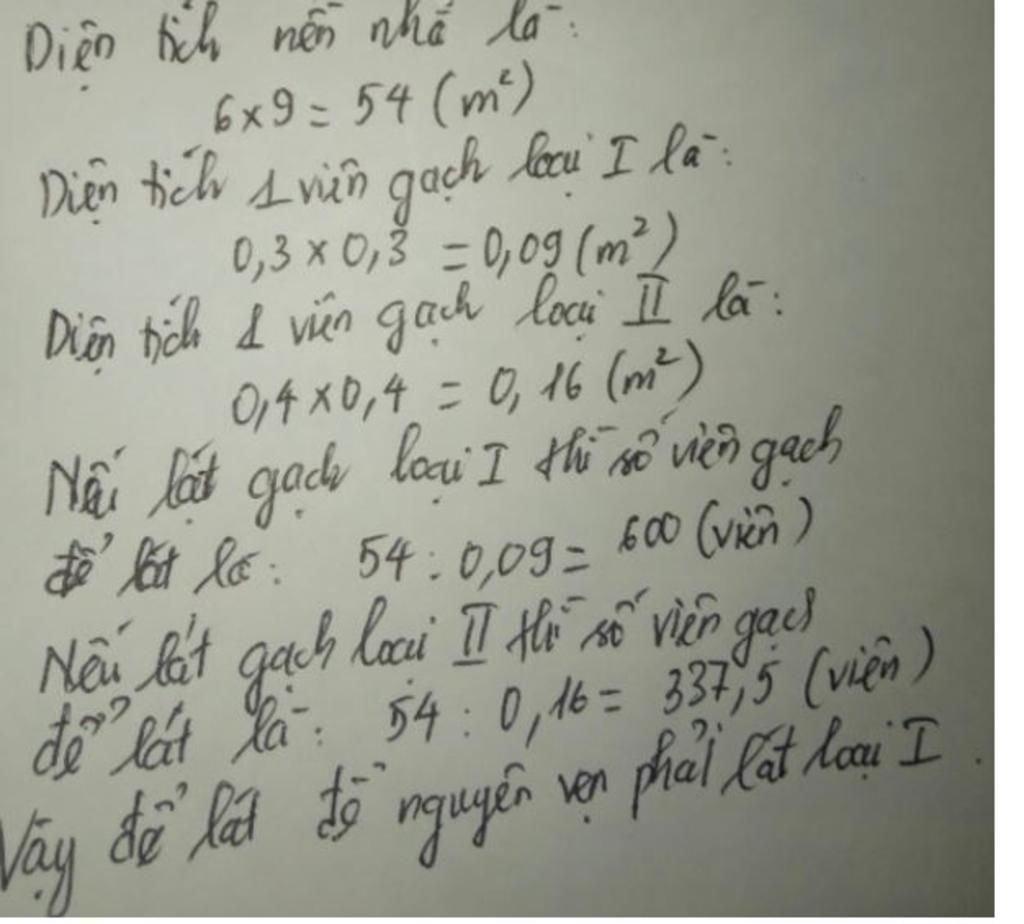 Diện tích nền nhà là:
6 x 9 = 54 (m²)
Diện tích 1 viên gạch loại I là:
0,3 x 0,3 = 0,09 (m²)
Diện tích 1 viên gạch loại II là:
0,4 x 0,4 = 0,16 (m²)
Nếu lát gạch loại I thì số viên gạch
để lát là: 54 : 0,09 = 600 (viên)
Nếu lát gạch loại II thì số viên gạch
để lát là: 54 : 0,16 = 337,5 (viên)
Vậy để lát độ nguyên vẹn phải lát loại I.